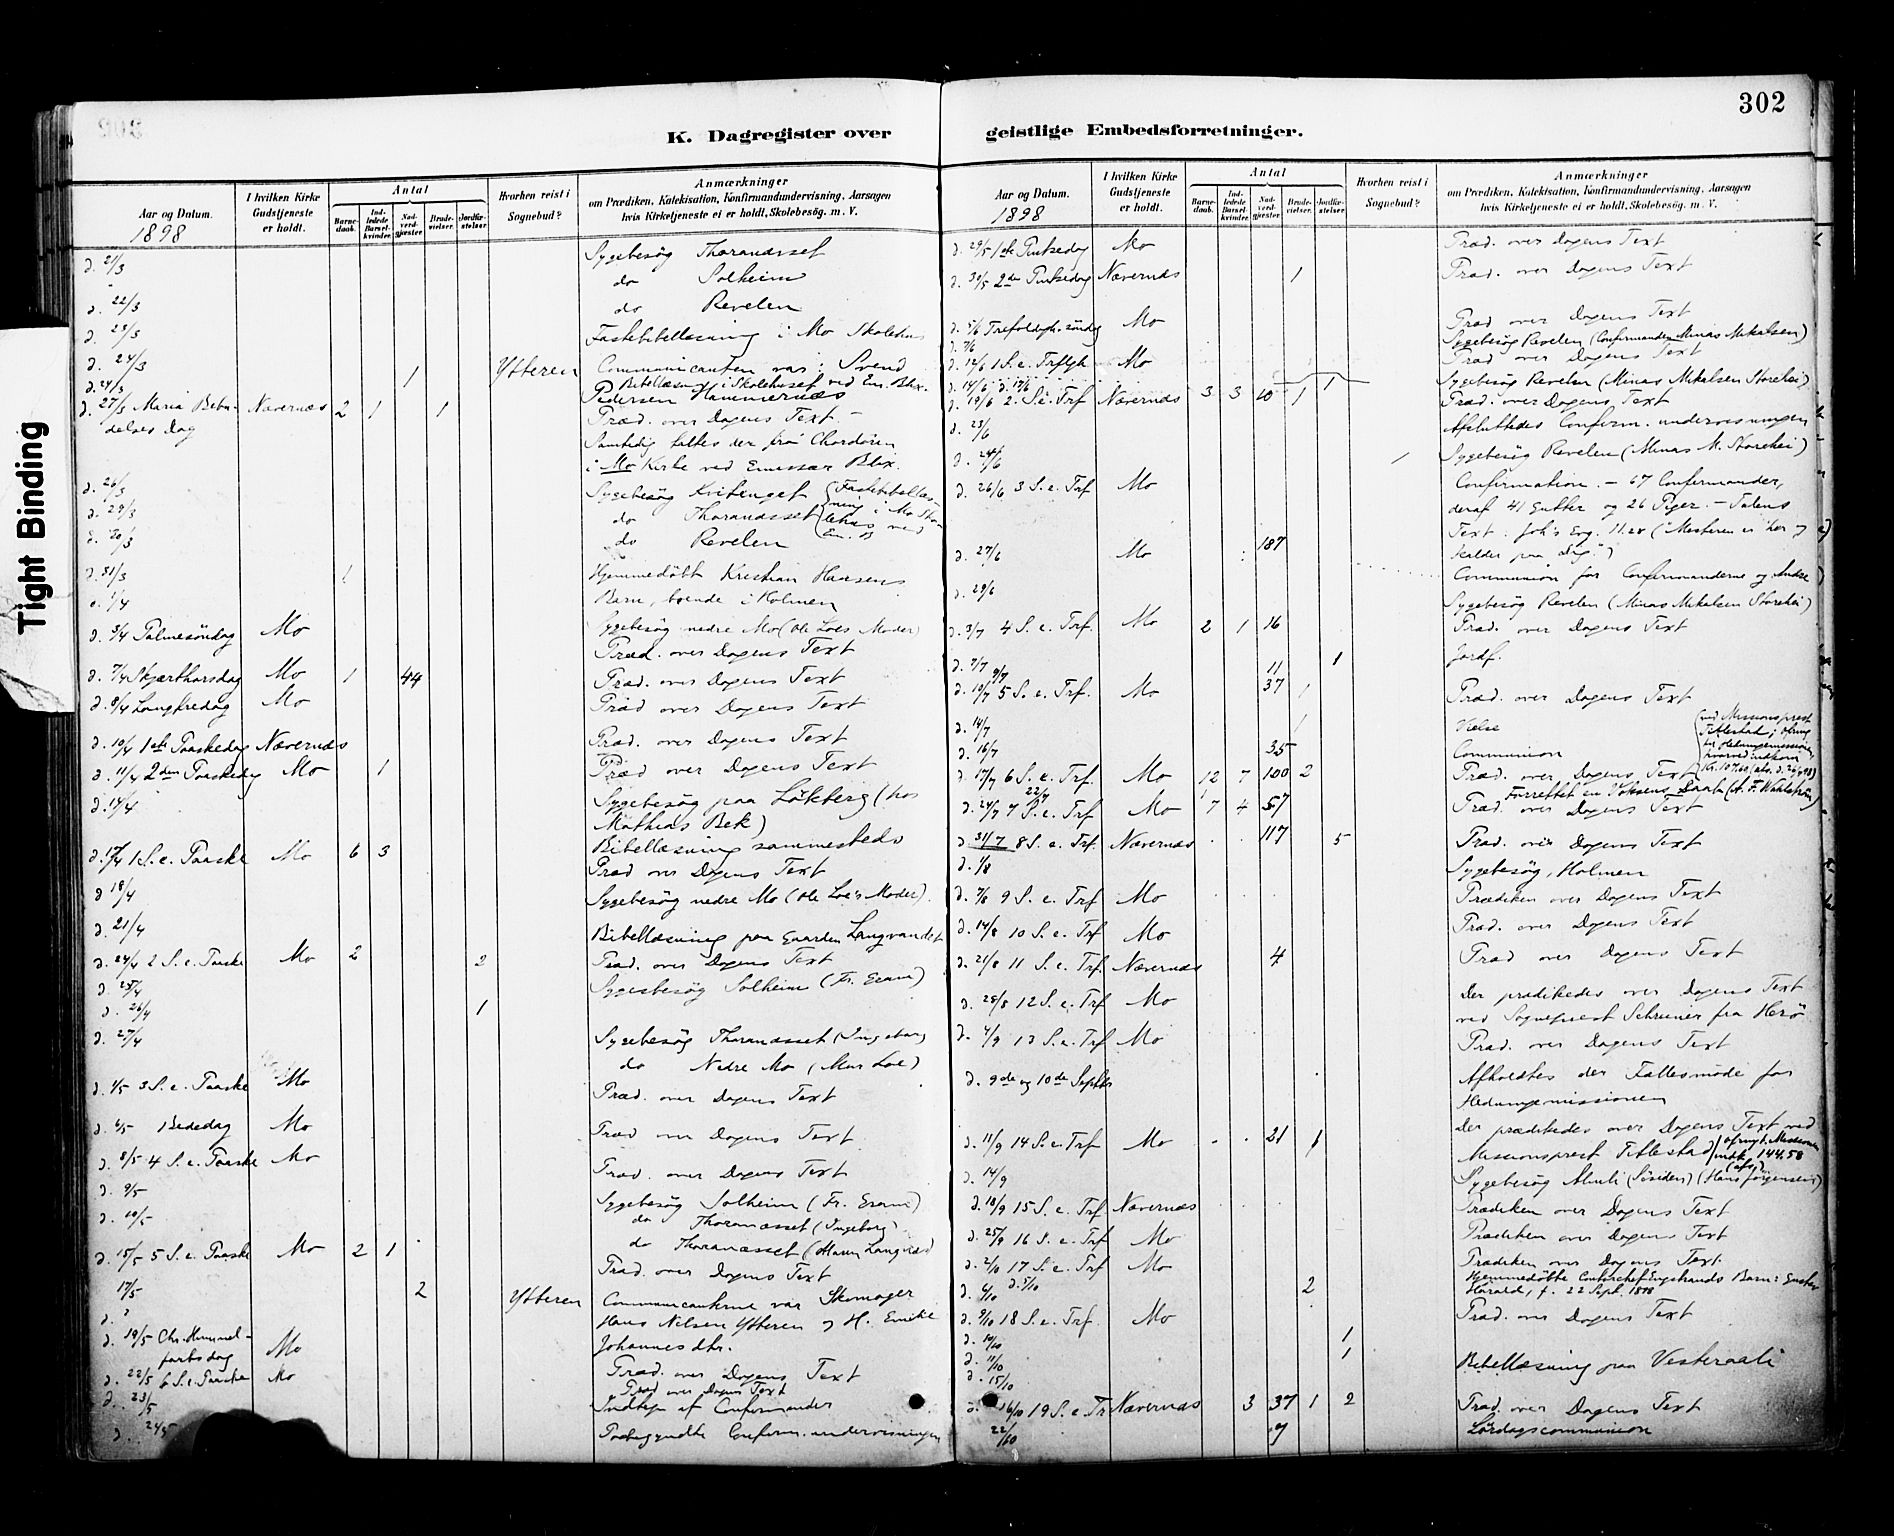 302
K. Dagregister over geistlige Embedsforretninger.
Tight Binding
Aar og Datum. 1898
I hvilken Kirke Gudstjeneste er holdt.
Antal
Barnedaab. Indledede Barselkvinder. Nadverdgjester Brudevielser. Jordfæstelser
Hvorhen reist i Sognebud?
Anmærkninger
om Prædiken, Katekisation, Konfirmandundervisning, Aarsagen
hvis Kirketjeneste ei er holdt, Skolebesøg. m. V.
d. 21/3 Sygebesøg Thoranæsset
do Solheim
d. 22/3 do Revelen
d. 23/3 Fastebibellæsning i Mo Skolehus
d. 24/3 1 Ytteren Communicanten var: Svend
d. 24/3 Bibellæsning i Skolehuset ved Em. Blix.
Pedersen Hammernæs
d. 27/3 Maria Bebu- Nævernæs 2 1 1 Præd. over Dagens Text –
delses Dag Samtidig taltes der fra Chordøren
i Mo Kirke ved Emissær Blix.
d. 26/3 Sygebesøg Kvitenget (Fastebibellæs-
d. 29/3 do Thoranæsset ning i Mo Sko-
lehus ved
d. 30/3 do Revelen Em. B
d. 31/3 1 Hjemmedöbt Kristian Hansens
d. 1/4 Barn, boende i Holmen
Sygebesøg nedre Mo (Ole Loes Moder)
d. 3/4 Palmesöndag Mo Præd. over Dagens Text
d. 7/4 Skjærthorsdag Mo 1 44 Præd. over Dagens Text
d. 8/4 Langfredag Mo Præd over Dagens Text
d. 10/4 1ste Paaskedag Nævernæs Præd. over Dagens Text
d. 11/4 2den Paaskedag Mo 1 Præd over Dagens Text
d. 14/4 Sygebesøg paa Lökberg (hos
Mathias Bek)
Bibellæsning sammesteds
d. 17/4 1 S. e. Paaske Mo 6 3 Præd over Dagens Text
d 18/4 Sygebesøg nedre Mo (Ole Loe's Moder).
d. 21/4 Bibellæsning paa Gaarden Langvandet
d. 24/4 2 S. e. Paaske Mo 2 2 Præd. over Dagens Text
d. 25/4 Sygebesøg Solheim (Fr. )
d. 26/4 1
d. 27/4 Sygebesøg Thoranæsset (Ingeborg
do Nedre Mo (Mor Loe)
d. 1/5 3 S. e. Paaske Mo Præd. over Dagens Text
d. 6/5 Bededag Mo Præd over Dagens Text
d. 8/5 4 S. e. Paaske Mo Præd. over Dagens Text
d. 9/5 Sygebesøg Solheim (Fr. )
d. 10/5 do Thoranæsset (Ingeborg)
do Thoranæsset
d. 15/5 5 S. e. Paaske Mo 2 1 Præd. over Dagens Text
17/5 2 Ytteren Communicanterne var Skomager
Hans Nilsen Ytteren og H. Emilie
Johannesdtr.
d. 19/5 Chr. Himmel- Mo Præd. over Dagens Text
fartsdag
d. 22/5 6 S. e. Paaske Mo Præd over Dagens Text
d. 23/5 Indtagn af Confirmander
d. 24/5 Paabegyndte Confirm. undervisningen
Aar og Datum. 1898
I hvilken Kirke Gudstjeneste er holdt.
Antal
Barnedaab. Indledede Barselkvinder. Nadverdgjester Brudevielser. Jordfæstelser
Hvorhen reist i Sognebud?
Anmærkninger
om Prædiken, Katekisation, Konfirmandundervisning, Aarsagen
hvis Kirketjeneste ei er holdt, Skolebesøg. m. V.
d. 29/5 1ste Pintsedag Mo Præd. over Dagens Text
d. 30/5 2den Pintsedag Nævernæs 1 Præd. over Dagens Text
d. 5/6 Trefoldigh. söndag Mo Præd over Dagens Text
d. 7/6 Sygebesøg Revelen (Confirmanden Minas Mikalsen)
d. 12/6 1 S. e. Trfgh Mo Præd over Dagens Text
d. 14/6 d. 17/6 1 Sygebesøg Revelen (Minas Mikalsen Storehei)
d. 19/6 2. S. e. Trf Nævernæs 3 3 10 1 Præd. over Dagens Text
d. 23/6 Afsluttedes Confirm. undervisningen
d. 24/6 Sygebesøg Revelen (Minas M. Storehei)
d. 26/6 3 S. e. Trf Mo Confirmation. – 67 Confirmander,
deraf 41 Gutter og 26 Piger. – Talens
Text: Joh's Evg. 11.28 ("Mesteren er her og
kalder paa dig.")
d. 27/6 Mo 187 Communion for Confirmanderne og Andre
d. 29/6 Sygebesøg Revelen (Minas Mikalsen Storehei)
d. 3/7 4 S. e. Trf. Mo 2 1 16 Præd. over Dagens Text
d. 7/7 1 Jordf.
9/7 11
d. 10/7 5 S. e. Trf. Mo 37 1 Præd. over Dagens Text
d. 14/7 1 Vielse
d. 16/7 35 Communion
d. 17/7 6 S. e. Trf. Mo 12 7 100 2 Præd. over Dagens Text (ved Missionsprest
Tittlestad; ofring
til Hedningemissionen
22/7 1 Forrettet en Voksens Daab
d. 24/7 7 S. e. Trf Mo 7 4 57 Præd. over Dagens Text
d 31/7 8 S. e. Trf. Nævernæs 117 5 Præd. over Dagens Text
d. 1/8 Sygebesøg, Holmen
d. 7/8 9 S. e. Trf Mo Prædiken over Dagens Text
d. 14/8 10 S. e. Trf Mo Præd. over Dagens Text
d. 21/8 11 S. e. Trf. Nævernæs 4 Præd over Dagens Text
d. 28/8 12 S. e. Trf Mo Der prædikedes over Dagens Text
ved Sogneprest Schreiner fra Herö
d. 4/9 13 S. e. Trf Mo Præd. over Dagens Text
d. 9de og 10de Septbr Afholdtes der Fællesmöde for
Hedningemissionen
d. 11/9 14 S. e. Trf Mo 21 1 Der prædikedes over Dagens Text ved
Missionsprest Tittlestad (ofringt. Missionen
indk. 144.58
d. 14/9 Sygebesøg (Hans Jørgensen)
d. 18/9 15 S. e. Trf Nævernæs Prædiken over Dagens Text
d. 25/9 16 S. e. Trf Mo Prædiken over Dagens Text
d. 2/10 17 S. e. Trf Mo Prædiken over Dagens Text.
d. 4/10 d. 5/10 2 Hjemmedöbte Barn: Gustav
Harald, f. 22 Sept. 1898
d. 9/10 18 S. e. Trf. Mo Præd. over Dagens Text
d. 10/10 1
d. 11/10 1 Bibellæsning paa Vesteraali
d. 15/10
d. 16/10 19 S. e Tr Nævernæs 3 37 1 2 Præd. over Dagens Text
22/10 7 Lördagscommunion